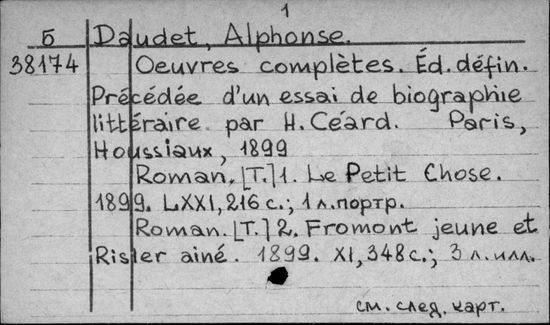 1
Б Daudet, Alphonse.
38174 Oeuvres complètes. Éd. défin.
Précédée d'un essai de biographie
littéraire par H. Céard. Paris,
Houssiaux, 1899
Roman. [T.] 1. Le Petit Chose.
1899. LXXI, 216 с.; 1 л. портр.
Roman. [T.] 2. Fromont jeune et
Risler ainé. 1899. XI, 348 с.; 3 л. илл.
см. след. карт.